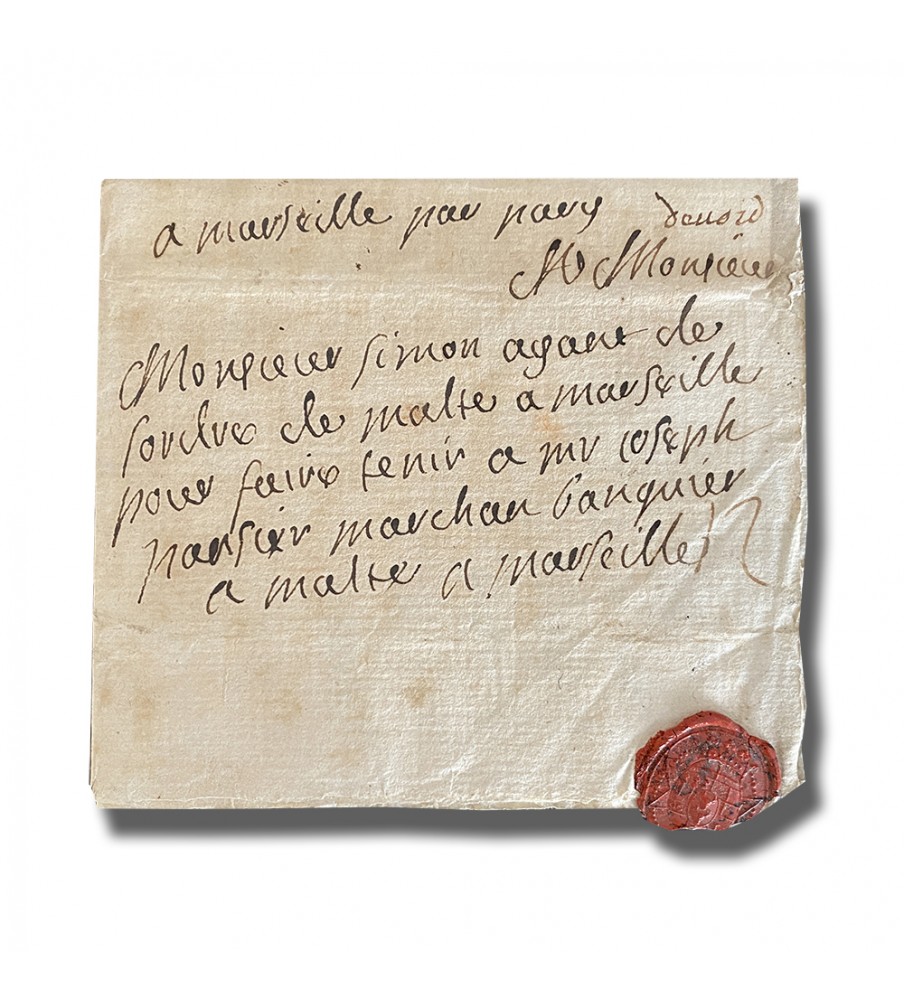 a marseille par pary
A Monsieur
Monsieur simon agant de
lordre de malte a marseille
pour faire tenir a mr ioseph
pansier marchan banquier
a malte a marseille